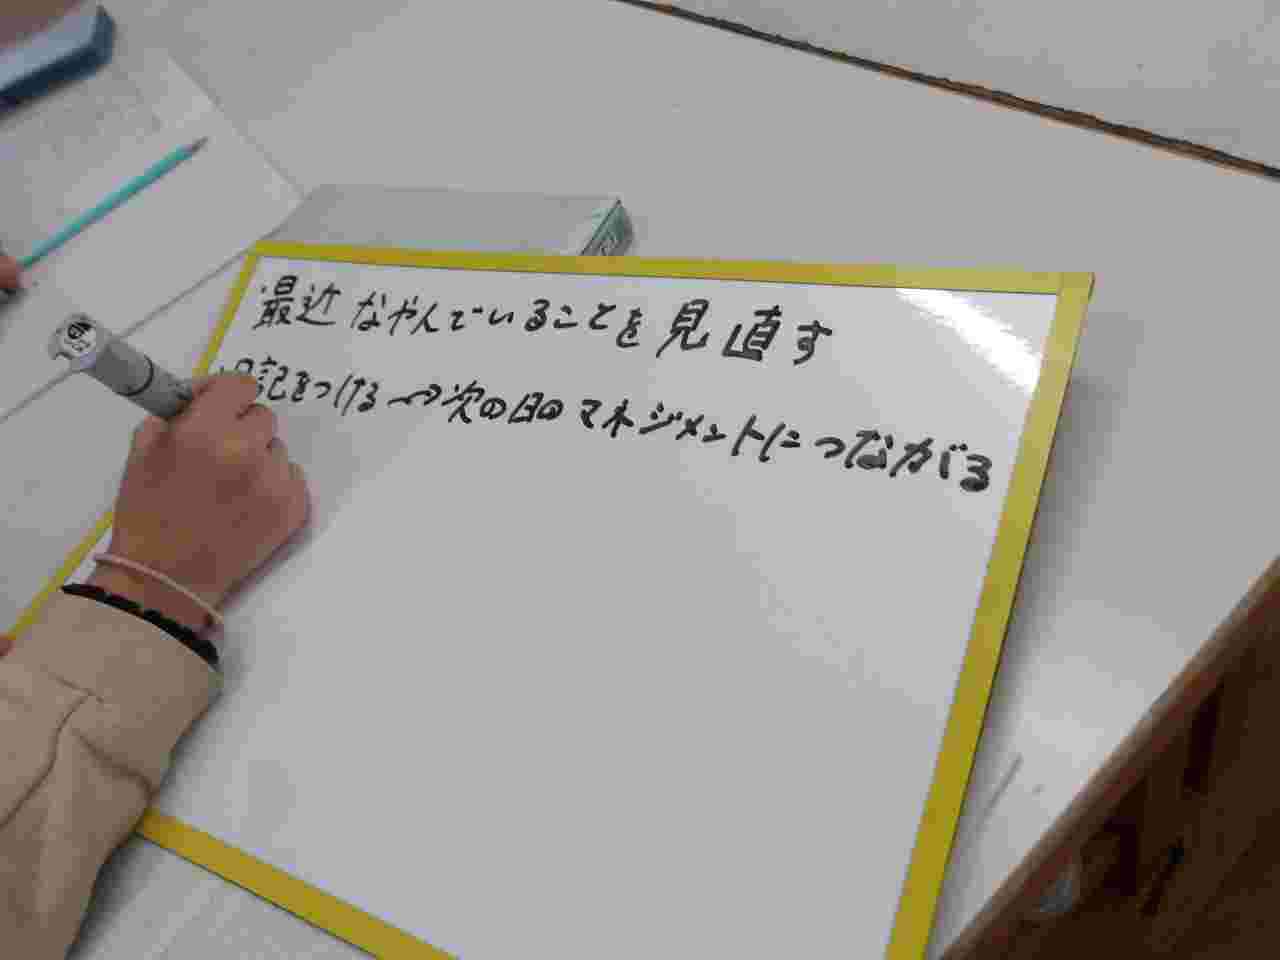 最近なやんでいることを見直す
日記をつける→次の日のマネジメントにつながる